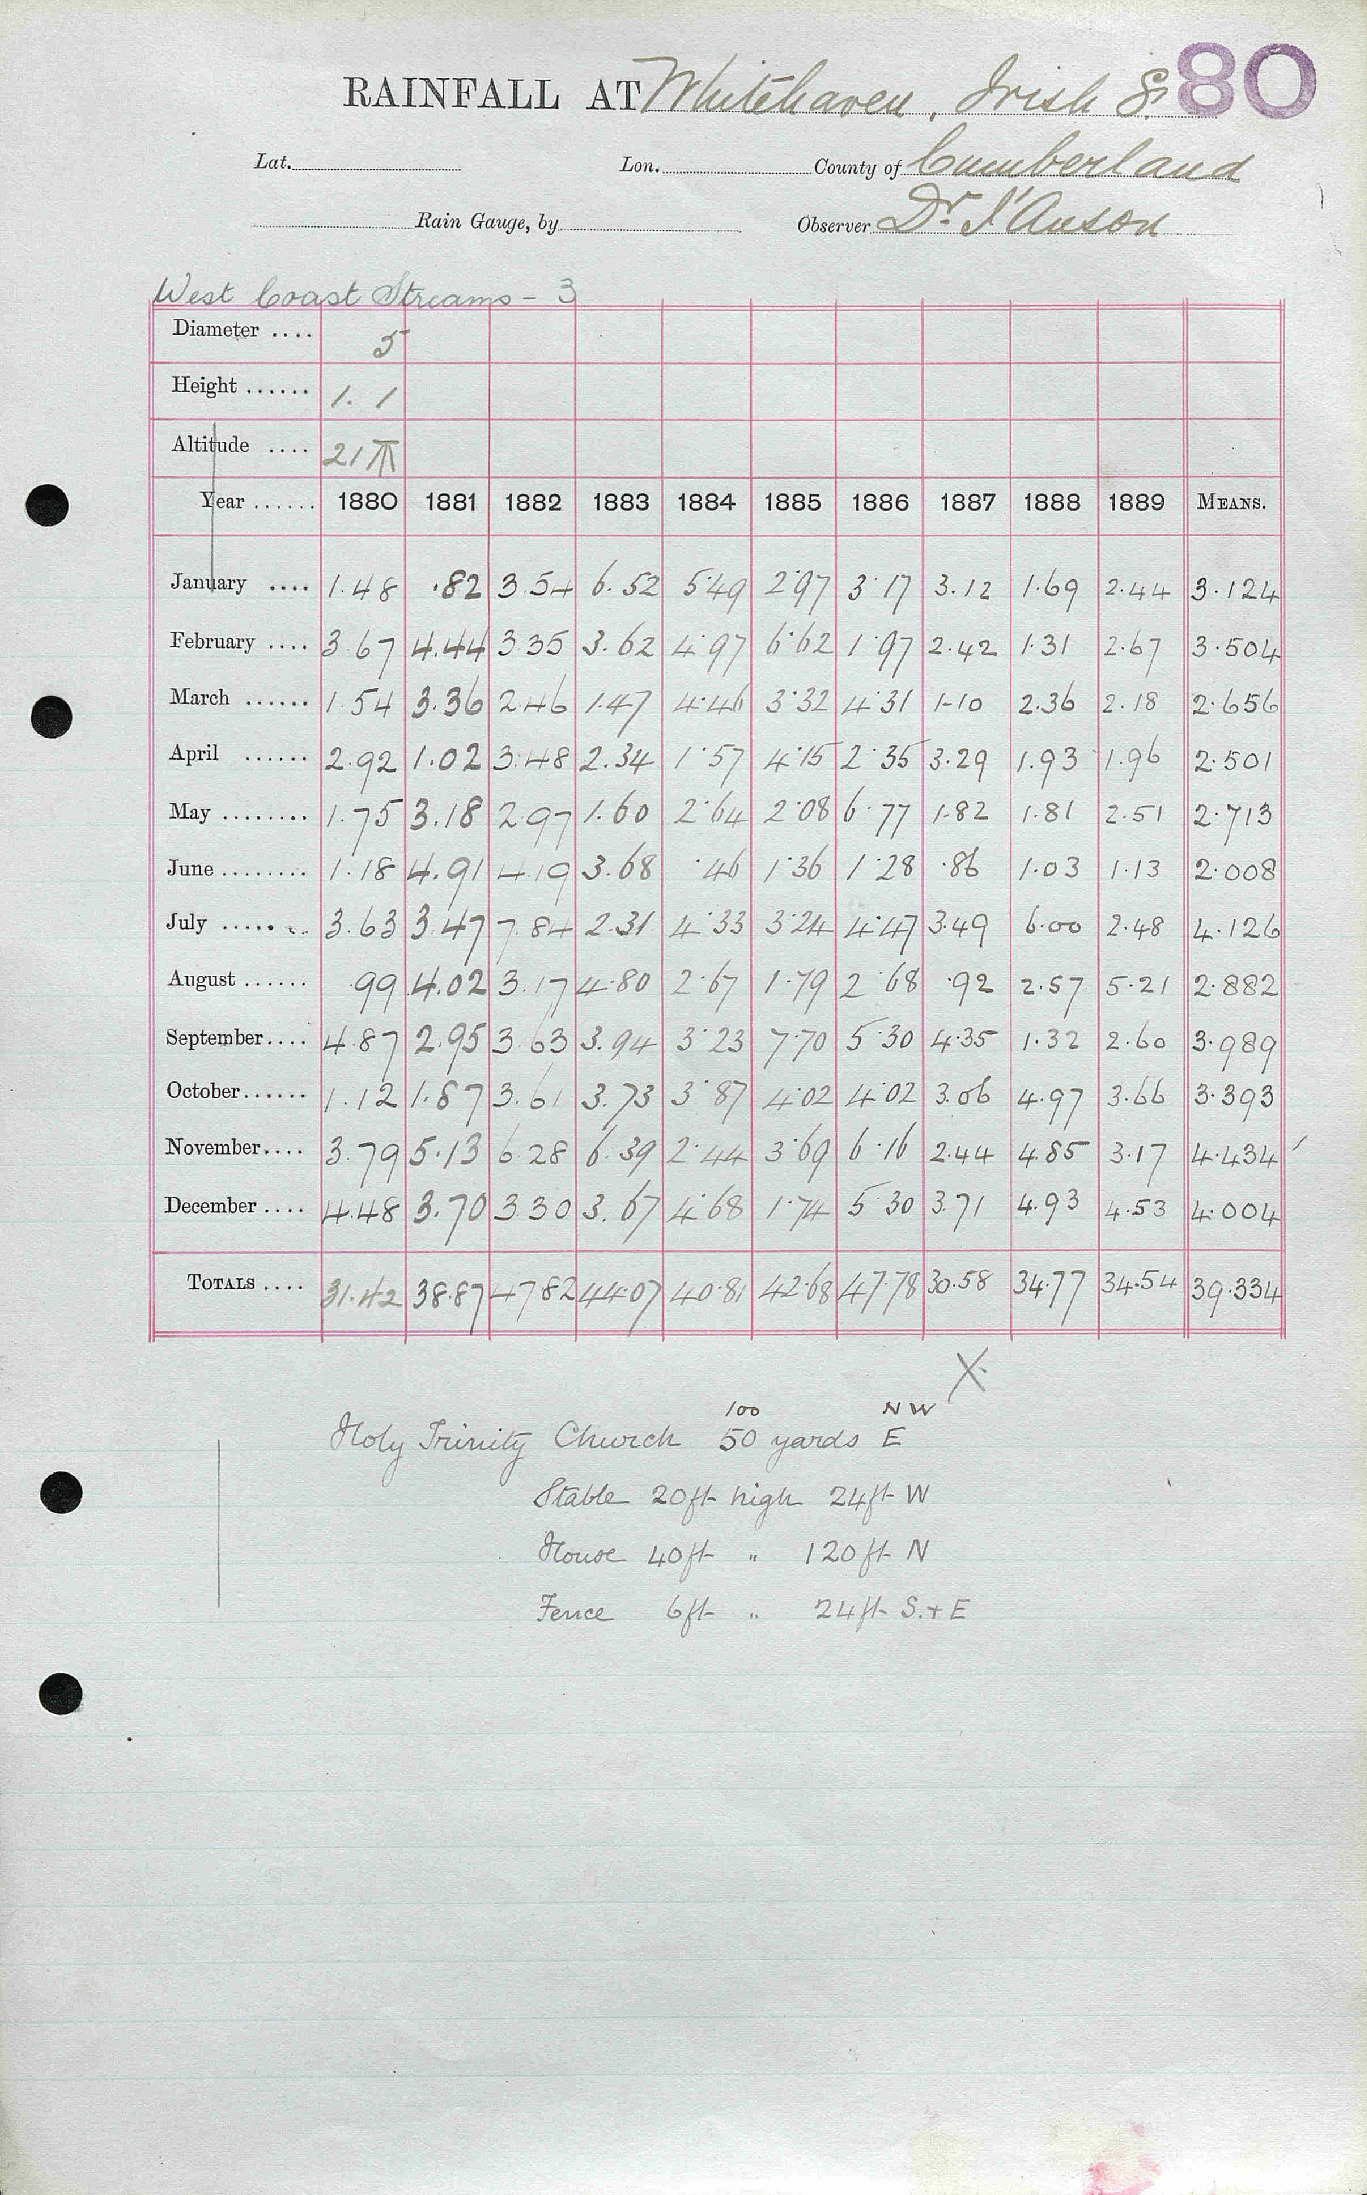 RAINFALL AT Whitehaven, Irish St. 80
Lat. Lon. County of Cumberland
Rain Gauge, by Observer Dr. I'Anson
West Coast Streams - 3
Diameter .... 5
Height ...... 1. 1
Altitude .... 21
Year ...... 1880 1881 1882 1883 1884 1885 1886 1887 1888 1889 MEANS.
January .... 1.48 .82 3.54 6.52 5.49 2.97 3.17 3.12 1.69 2.44 3.124
February .... 3.67 4.44 3.35 3.62 4.97 6.62 1.97 2.42 1.31 2.67 3.504
March ...... 1.54 3.36 2.46 1.47 4.46 3.32 4.31 1.10 2.36 2.18 2.656
April ...... 2.92 1.02 3.48 2.34 1.57 4.15 2.35 3.29 1.93 1.96 2.501
May ........ 1.75 3.18 2.97 1.60 2.64 2.08 6.77 1.82 1.81 2.51 2.713
June ........ 1.18 4.91 4.19 3.68 .46 1.36 1.28 .86 1.03 1.13 2.008
July ........ 3.63 3.47 7.84 2.31 4.33 3.24 4.47 3.49 6.00 2.48 4.126
August ...... .99 4.02 3.17 4.80 2.67 1.79 2.68 .92 2.57 5.21 2.882
September .... 4.87 2.95 3.63 3.94 3.23 7.70 5.30 4.35 1.32 2.60 3.989
October ...... 1.12 1.87 3.61 3.73 3.87 4.02 4.02 3.06 4.97 3.66 3.393
November .... 3.79 5.13 6.28 6.39 2.44 3.69 6.16 2.44 4.85 3.17 4.434
December .... 4.48 3.70 3.30 3.67 4.68 1.74 5.30 3.71 4.93 4.53 4.004
TOTALS .... 31.42 38.87 47.82 44.07 40.81 42.68 47.78 30.58 34.77 34.54 39.334
X
100 NW
Holy Trinity Church 50 yards E
Stable 20ft high 24ft W
House 40ft " 120ft N
Fence 6ft " 24ft S. + E